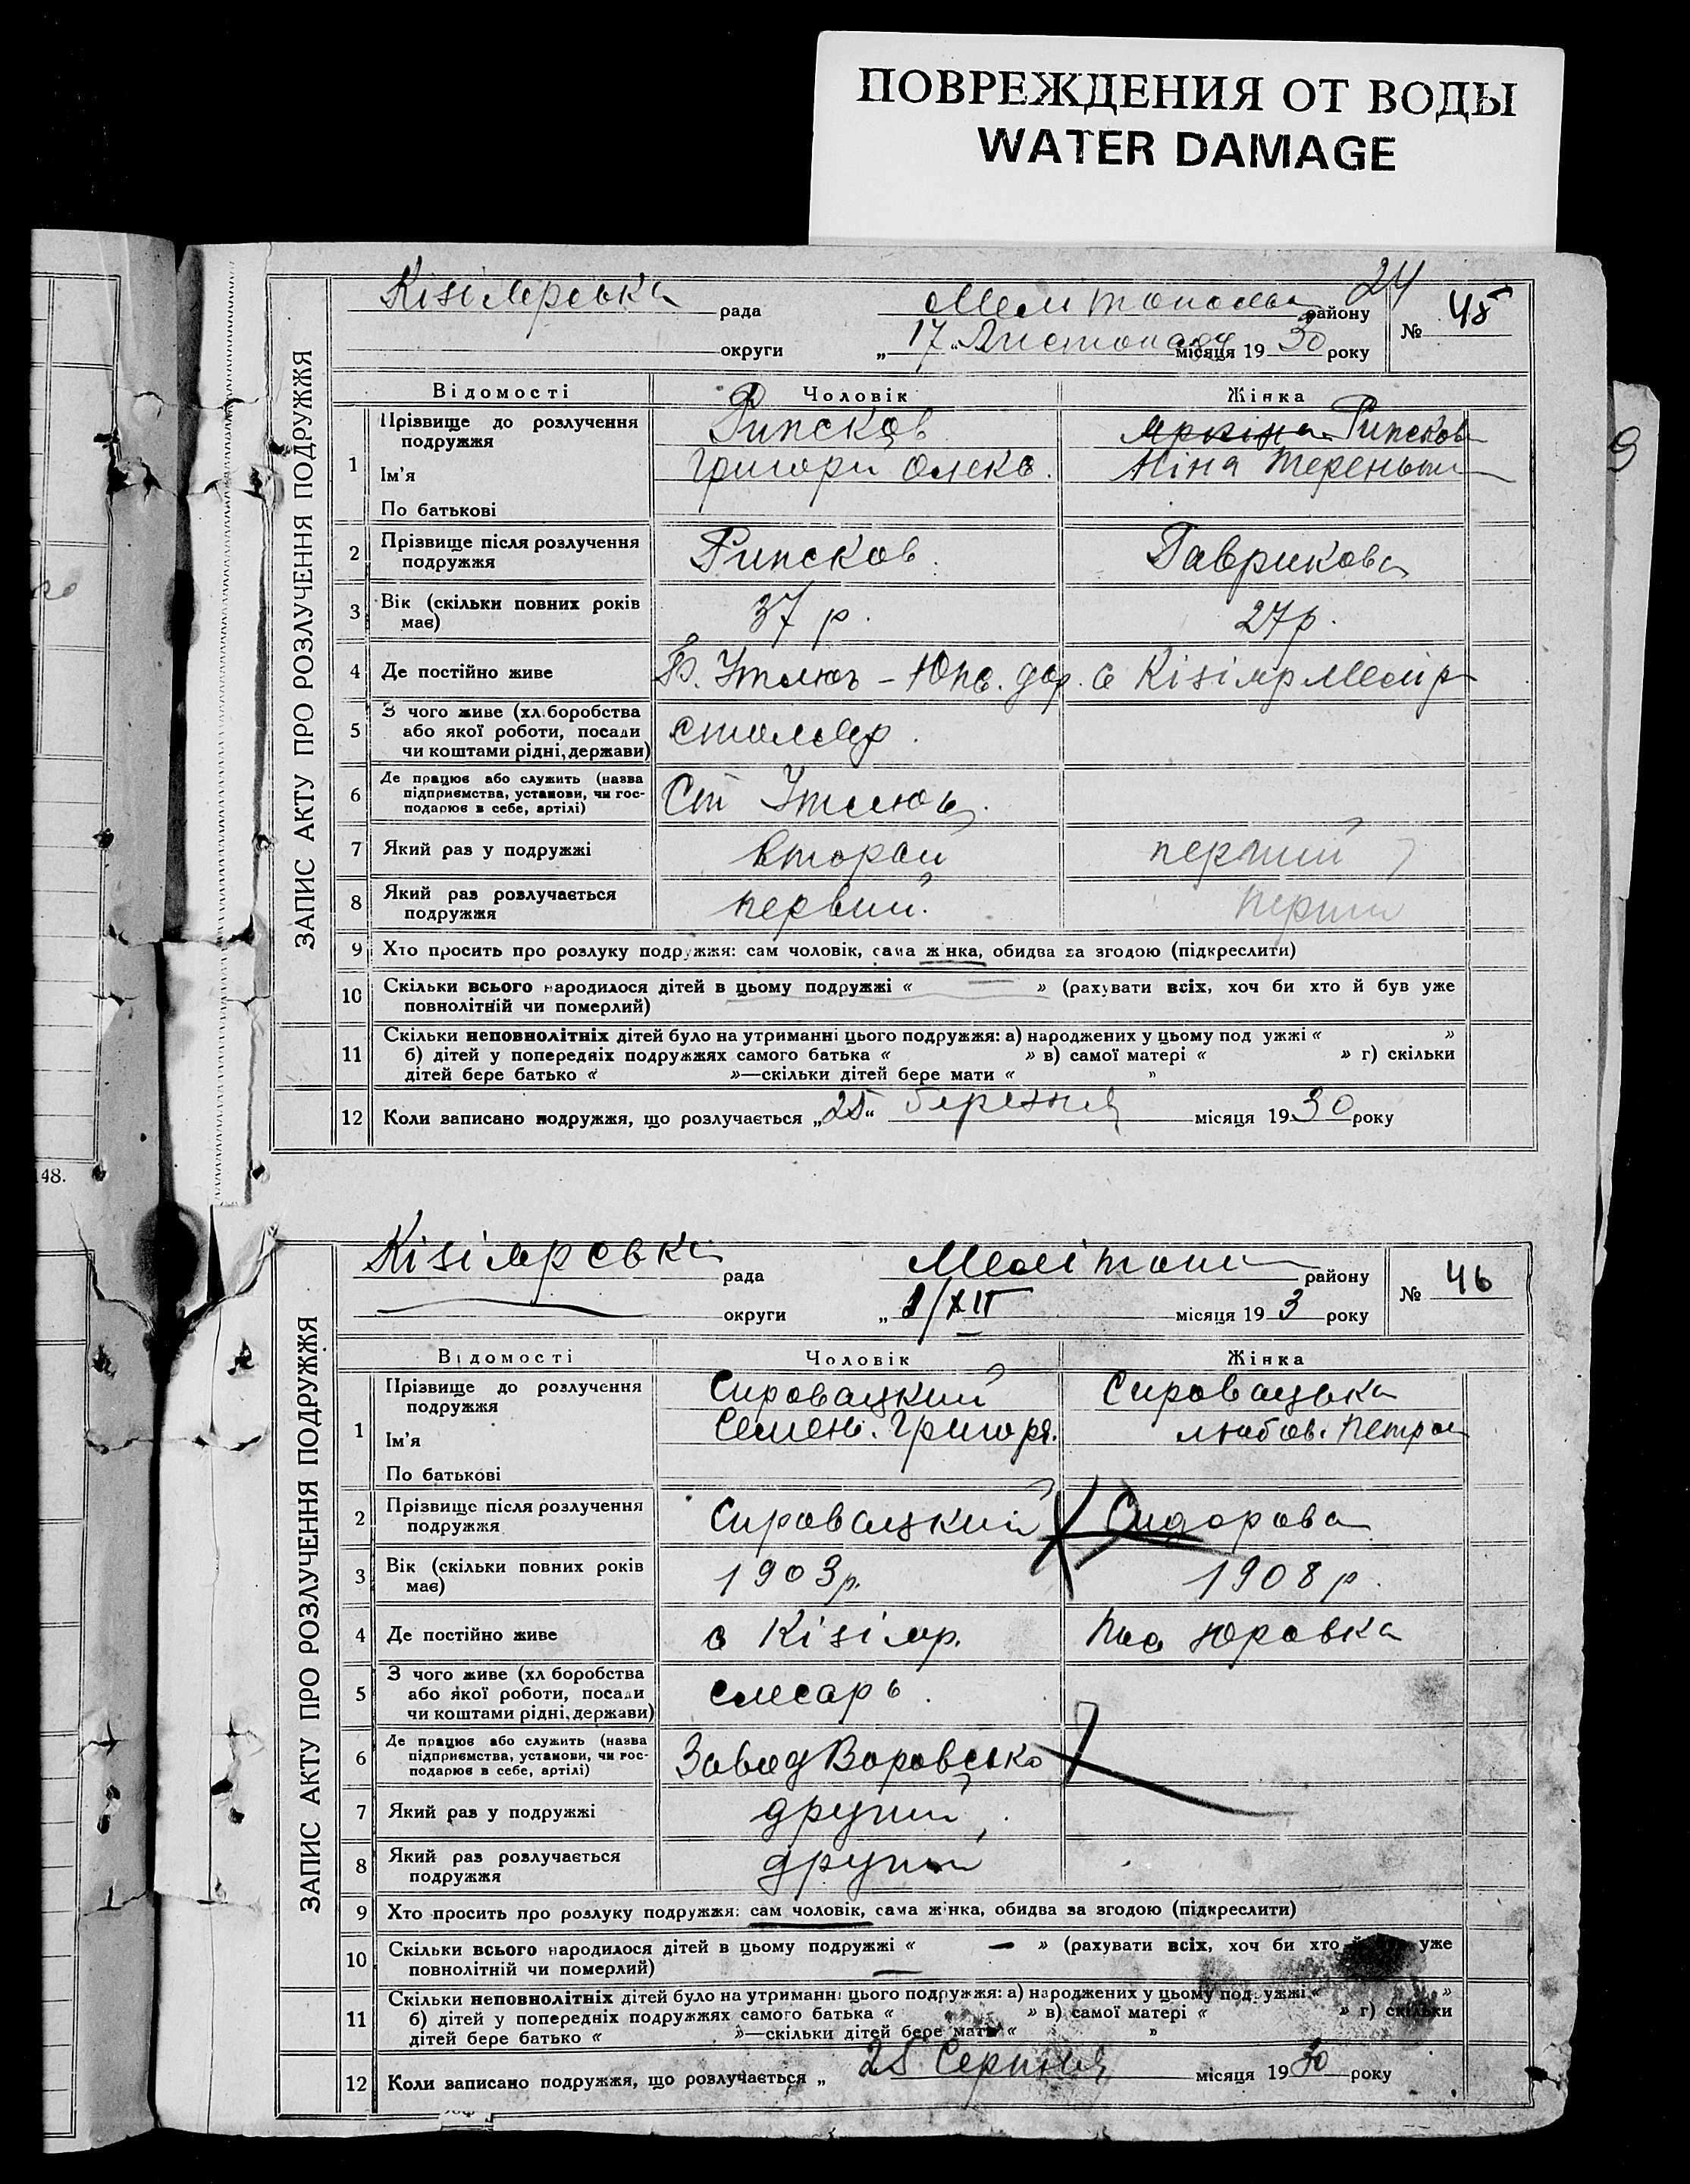 ПОВРЕЖДЕНИЯ ОТ ВОДЫ
WATER DAMAGE
24
Кізіярська рада района № 45
округи „17“ Листопада місяця 1930 року
ЗАПИС АКТУ ПРО РОЗЛУЧЕННЯ ПОДРУЖЖЯ
Відомості Чоловік Жінка
1 Прізвище до розлучення подружжя Рипсков Рипсков
Ім’я Григори Олекс. Ніна Терентьи
По батькові
2 Прізвище після розлучення Рипсков Гаврикова
подружжя
3 Вік (скільки повних років 37 р. 27 р.
має)
4 Де постійно живе с Кізіяр
5 З чого живе (хл.боробства столяр.
або якої роботи, посади
чи коштами рідні, держави)
6 Де працює або служить (назва Ст
підприємства, установи, чи гос-
подарює в себе, артілі)
7 Який раз у подружжі второй перший
8 Який раз розлучається первий. перши
подружжя
9 Хто просить про розлуку подружжя: сам чоловік, сама жінка, обидва за згодою (підкреслити)
10 Скільки всього народилося дітей в цьому подружжі « — » (рахувати всіх, хоч би хто й був уже
повнолітній чи померлий)
11 Скільки неповнолітніх дітей було на утриманні цього подружжя: а) народжених у цьому подружжі « »
б) дітей у попередніх подружжях самого батька « » в) самої матері « » г) скільки
дітей бере батько « »—скільки дітей бере мати « »
12 Коли записано подружжя, що розлучається „25“ березня місяця 1930 року
148.
Кізіярська рада Меліտոп району № 46
округи „1/XII місяця 193 року
ЗАПИС АКТУ ПРО РОЗЛУЧЕННЯ ПОДРУЖЖЯ
Відомості Чоловік Жінка
1 Прізвище до розлучення Сировацкий Сировацька
подружжя
Ім’я Семен. Григоря. Любов. Петров
По батькові
2 Прізвище після розлучення Сировацкий Сидорова
подружжя
3 Вік (скільки повних років 1903 р. 1908 р.
має)
4 Де постійно живе с Кізіяр. Юровка
5 З чого живе (хл боробства слесарь.
або якої роботи, посади
чи коштами рідні, держави)
6 Де працює або служить (назва Завод Воровсько
підприємства, установи, чи гос-
подарює в себе, артілі)
7 Який раз у подружжі другий
8 Який раз розлучається другий
подружжя
9 Хто просить про розлуку подружжя: сам чоловік, сама жінка, обидва за згодою (підкреслити)
10 Скільки всього народилося дітей в цьому подружжі « — » (рахувати всіх, хоч би хто й був уже
повнолітній чи померлий)
11 Скільки неповнолітніх дітей було на утриманні цього подружжя: а) народжених у цьому подружжі « »
б) дітей у попередніх подружжях самого батька « » в) самої матері « » г) скільки
дітей бере батько « »—скільки дітей бере мати « »
12 Коли записано подружжя, що розлучається „ 25 Серпня місяця 1930 року